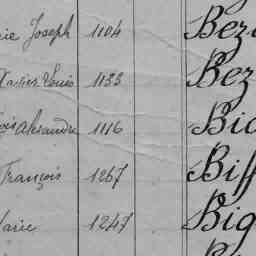 rie Joseph 1104 Bez
Xavier Louis 1133 Bez
çois Alexandre 1116 Bid
François 1267 Biff
Marie 1247 Big